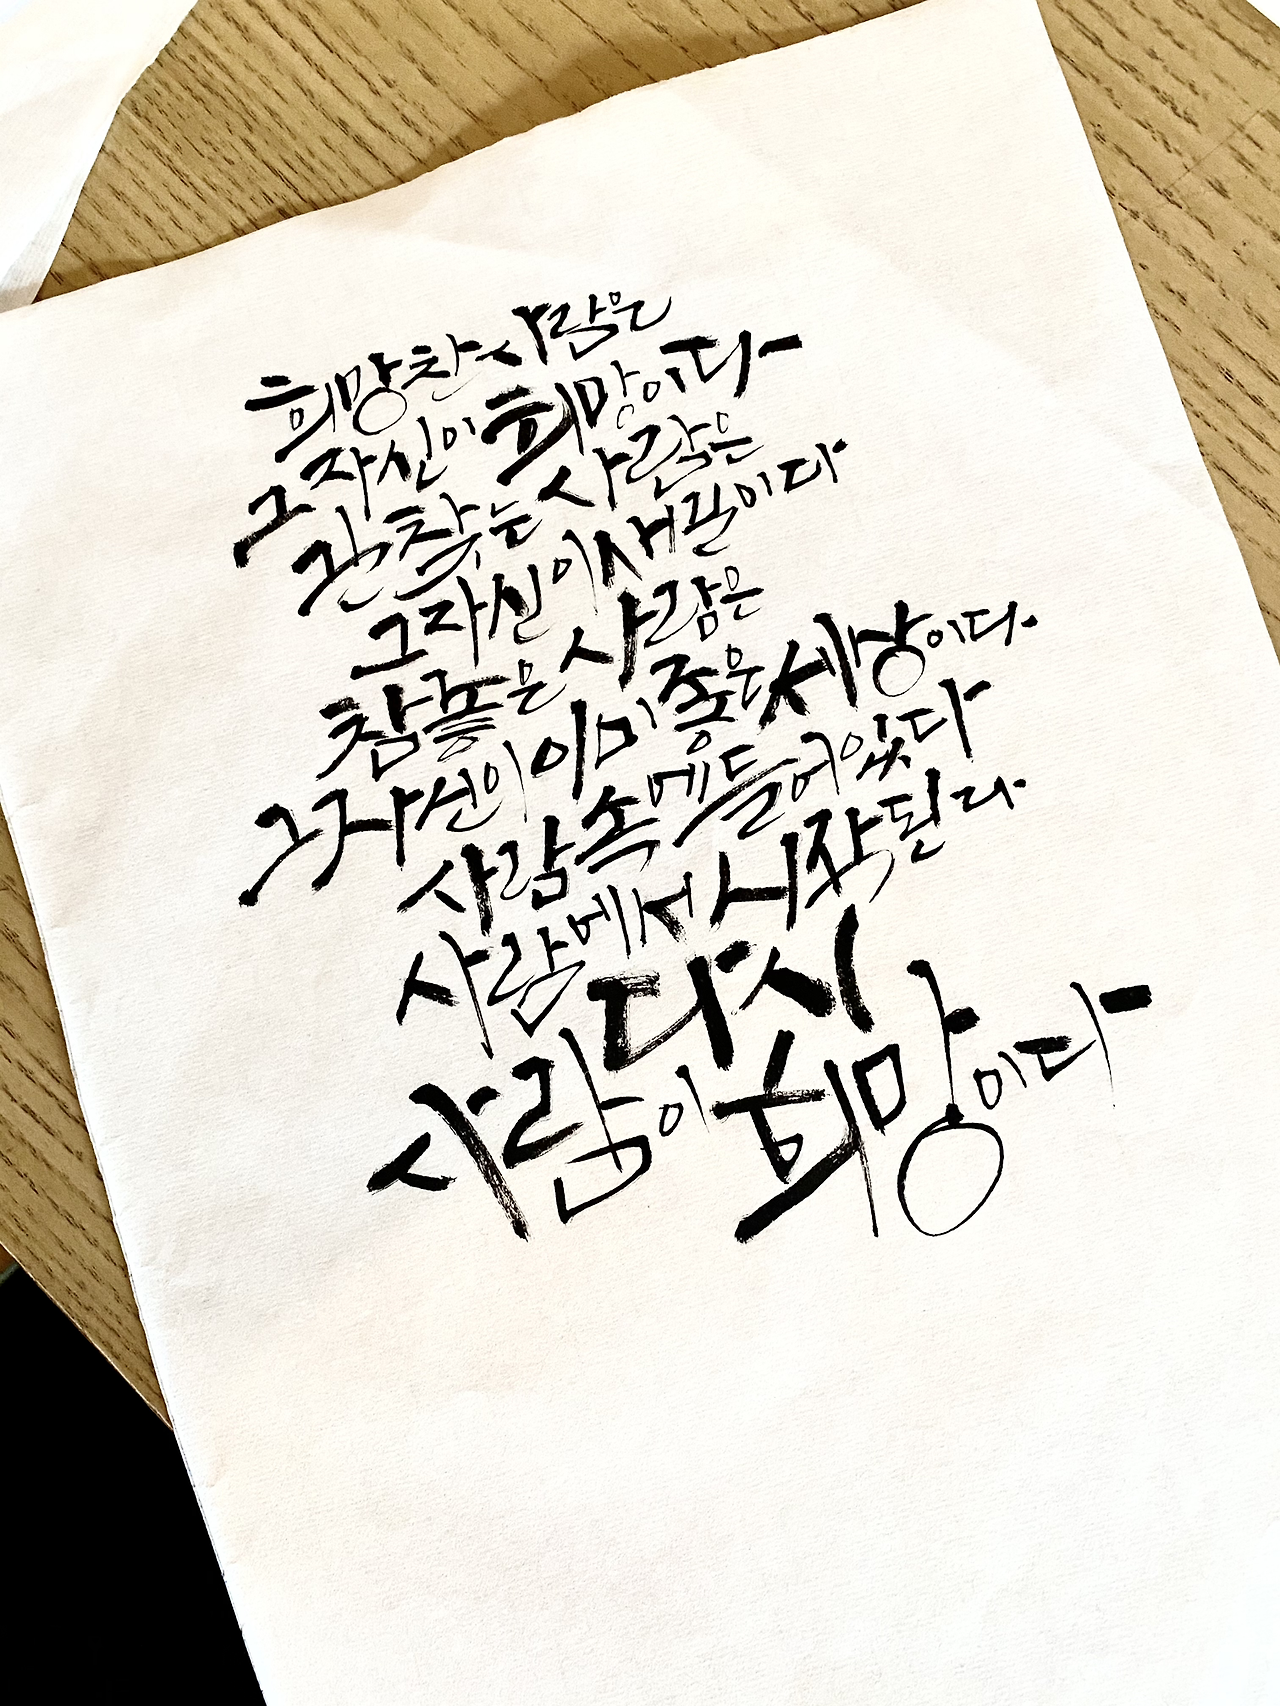 희망찬 사람은
그 자신이 희망이다
길 찾는 사람은
그 자신이 새 길이다
참 좋은 사람은
그 자신이 이미 좋은 세상이다.
사람 속에 들어 있다
사람에서 시작된다
다시
사람이 희망이다